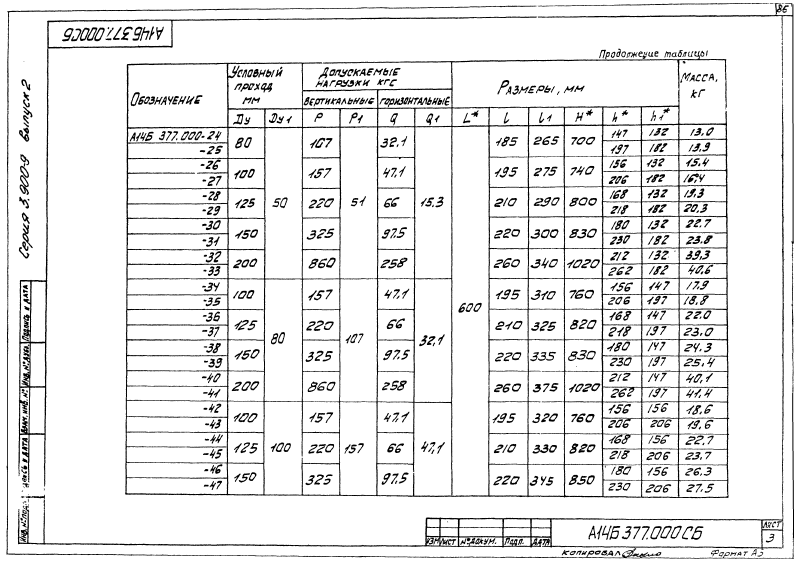 86
А14Б.377.000СБ
Серия 3.900-9 выпуск 2
Продолжение таблицы
Обозначение Условный проход мм Допускаемые нагрузки кгс Размеры, мм Масса, кг
вертикальные горизонтальные
Dу Dу1 P P1 Q Q1 L* l l1 H* h* h1*
А14Б 377.000-24 80 50 107 51 32,1 15.3 600 185 265 700 147 132 13,0
-25 197 182 13,9
-26 100 157 47,1 195 275 740 156 132 15.4
-27 206 182 16,4
-28 125 220 66 210 290 800 168 132 19,3
-29 218 182 20,3
-30 150 325 97.5 220 300 830 180 132 22.7
-31 230 182 23.8
-32 200 860 258 260 340 1020 212 132 39,3
-33 262 182 40,6
-34 100 80 157 107 47,1 32,1 195 310 760 156 147 17,9
-35 206 197 18,8
-36 125 220 66 210 325 820 168 147 22.0
-37 218 197 23,0
-38 150 325 97.5 220 335 830 180 147 24,3
-39 230 197 25,4
-40 200 860 258 260 375 1020 212 147 40,1
-41 262 197 41,4
-42 100 100 157 157 47,1 47,1 195 320 760 156 156 18,6
-43 206 206 19,6
-44 125 220 66 210 330 820 168 156 22,7
-45 218 206 23,7
-46 150 325 97,5 220 345 850 180 156 26,3
-47 230 206 27,5
Инв. № подл. Подпись и дата Взам. инв. № Инв. № дубл. Подпись и дата
А14Б 377.000СБ
Лист
3
Изм Лист № докум. Подп. Дата
Копировал
Формат А3